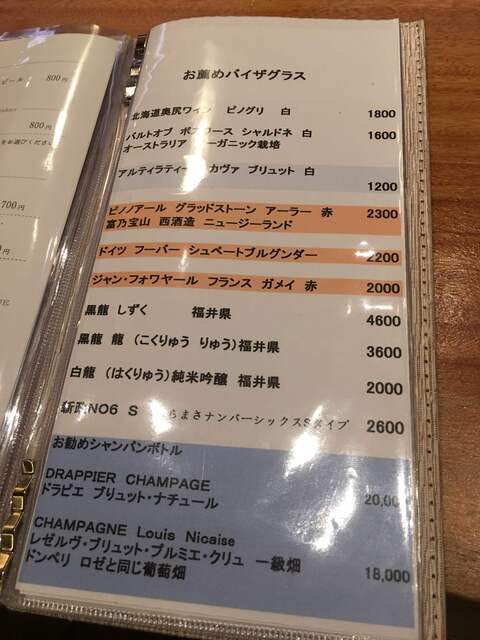 ビール 800円
800円
700円
円
お薦めバイザグラス
北海道奥尻ワイン ピノグリ 白 1800
バルトオブ シャルドネ 白 1600
オーストラリア オーガニック栽培
アルティラティ カヴァ ブリュット 白
1200
ピノノアール グラッドストーン アーラー 赤 2300
富乃宝山 西酒造 ニュージーランド
ドイツ フーバー シュペートブルグンダー 2200
ジャン・フォワヤール フランス ガメイ 赤 2000
黒龍 しずく 福井県 4600
黒龍 龍 (こくりゅう りゅう)福井県 3600
白龍 (はくりゅう)純米吟醸 福井県 2000
新政NO6 S らまさナンバーシックスSタイプ 2600
お勧めシャンパンボトル
DRAPPIER CHAMPAGE
ドラピエ ブリュット・ナチュール 20,00
CHAMPAGNE Louis Nicaise
レゼルヴ・ブリュット・プルミエ・クリュ 一級畑
ドンペリ ロゼと同じ葡萄畑 18,000